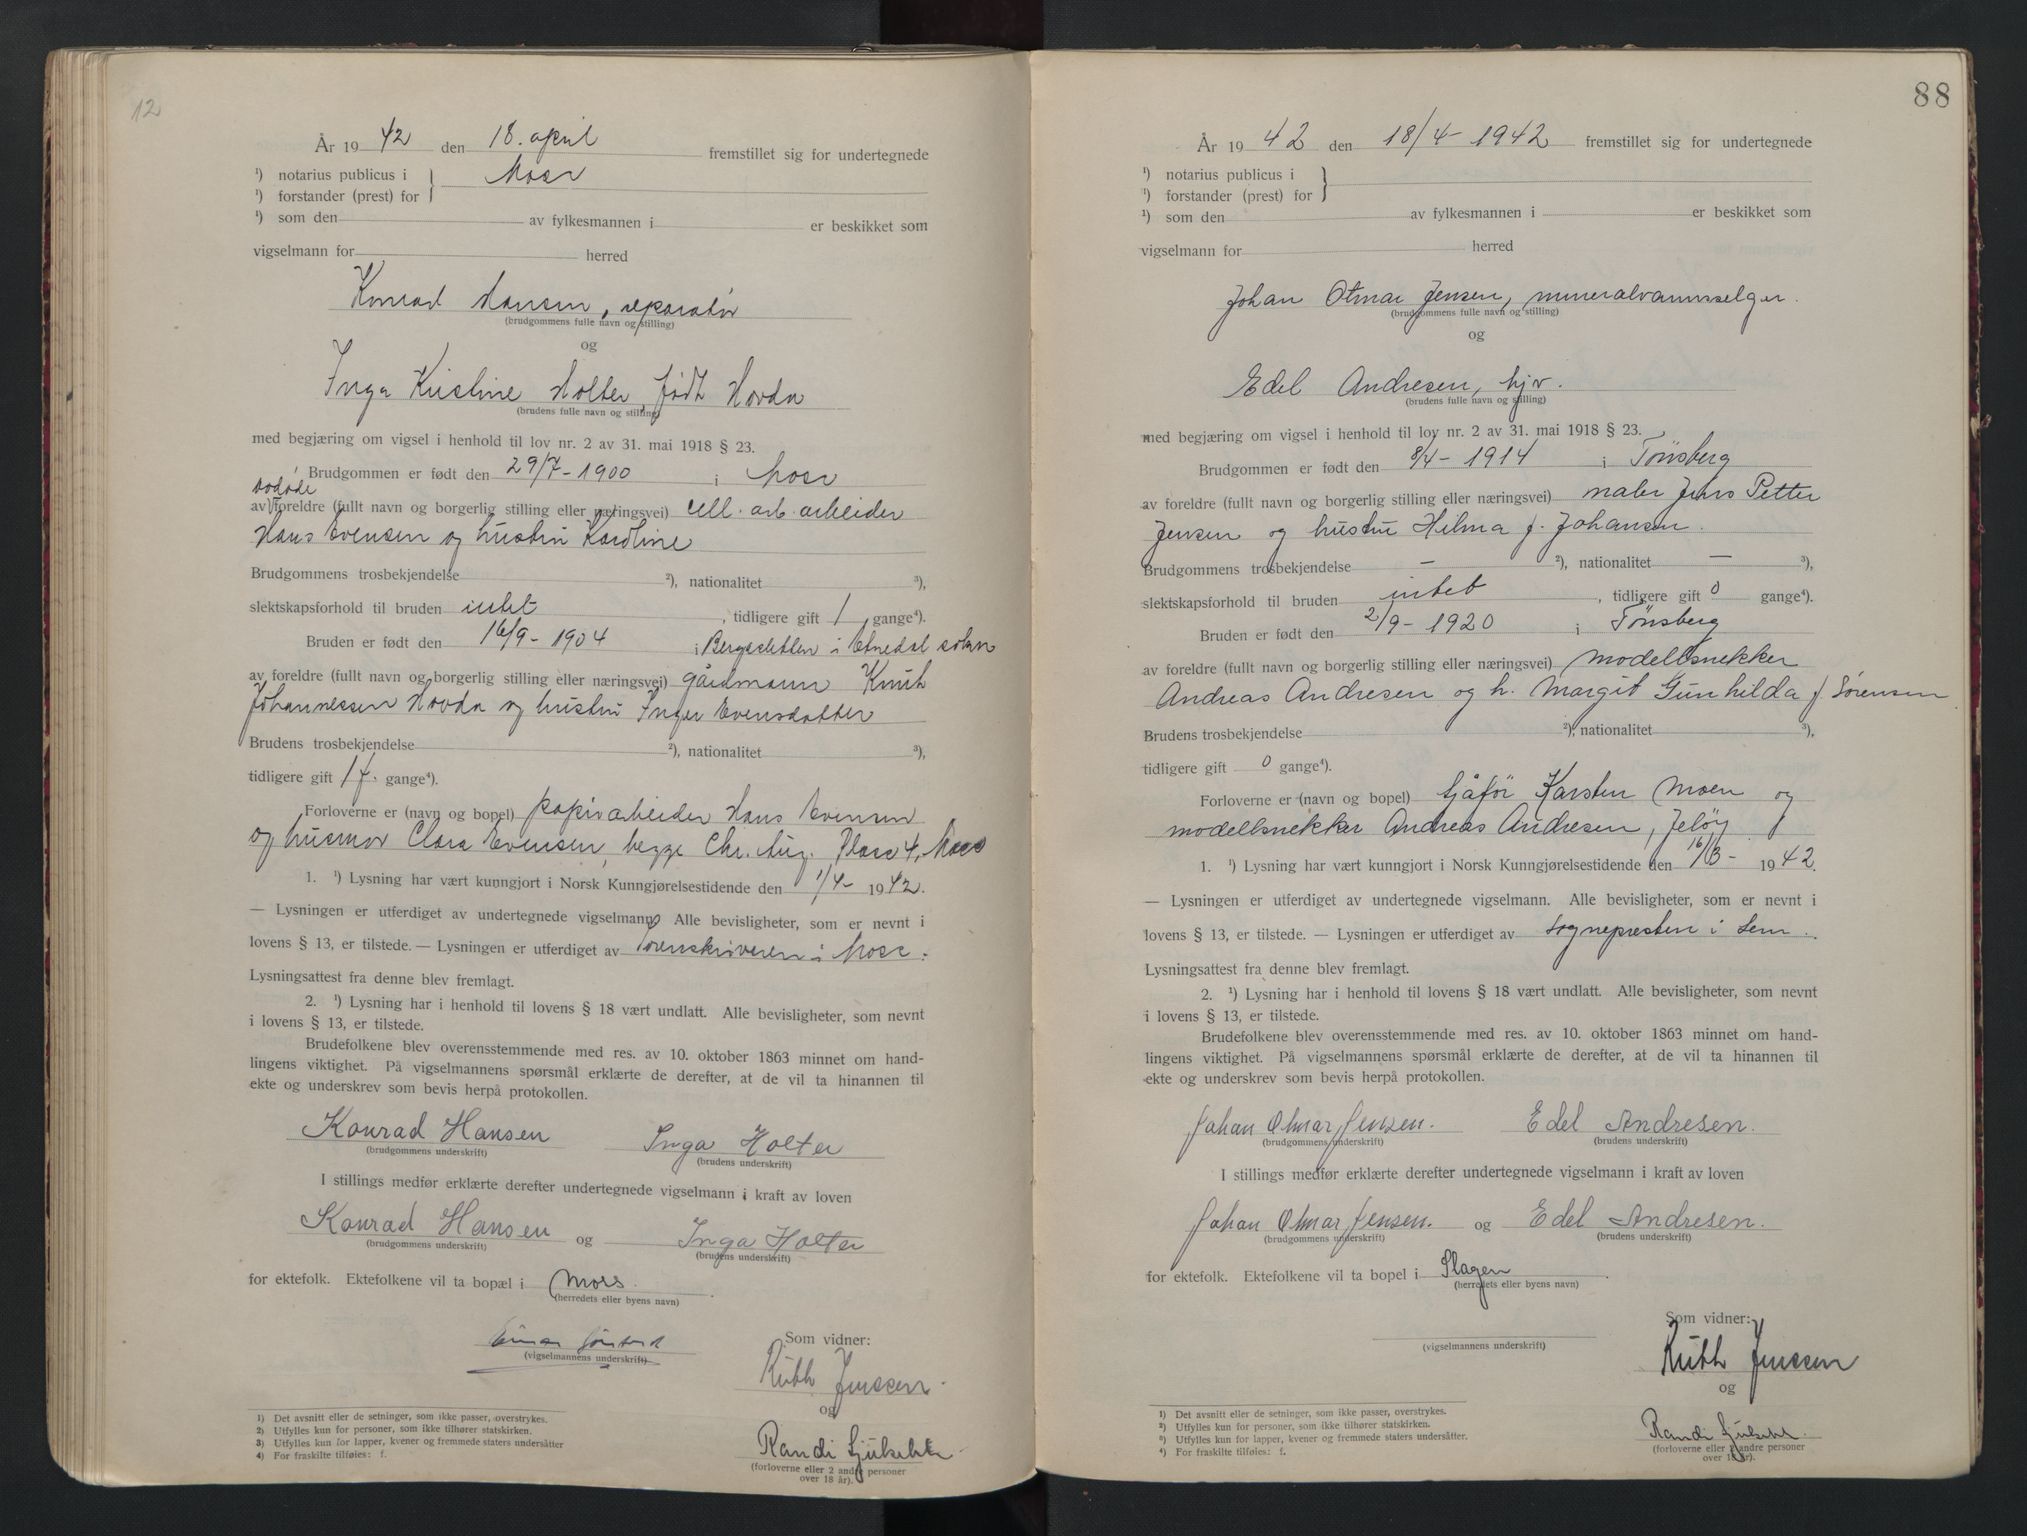 12
År 1942 den 18. april fremstillet sig for undertegnede
¹) notarius publicus i } Moss
¹) forstander (prest) for
¹) som den av fylkesmannen i er beskikket som
vigselmann for herred
Konrad Hansen, reparatør
(brudgommens fulle navn og stilling)
og
Inga Kristine Holter, født Hovda
(brudens fulle navn og stilling)
med begjæring om vigsel i henhold til lov nr. 2 av 31. mai 1918 § 23.
Brudgommen er født den 29/7-1900 i Moss
av foreldre (fullt navn og borgerlig stilling eller næringsvei) cell. arb. arbeider
Hans Evensen og hustru Karoline
Brudgommens trosbekjendelse ²), nationalitet ³),
slektskapsforhold til bruden intet, tidligere gift 1 gange⁴).
Bruden er født den 16/9-1904 i i Etnedal
av foreldre (fullt navn og borgerlig stilling eller næringsvei) gårdmann Knut
Johannessen Hovda og hustru Inger Evensdatter
Brudens trosbekjendelse ²), nationalitet ³),
tidligere gift 1 f. gange⁴).
Forloverne er (navn og bopel) papirarbeider Hans Evensen
og husmor Clara Evensen, begge Chr. Aug. Plass 4, Moss
1. ¹) Lysning har vært kunngjort i Norsk Kunngjørelsestidende den 1/4- 1942.
— Lysningen er utferdiget av undertegnede vigselmann. Alle bevisligheter, som er nevnt i
lovens § 13, er tilstede. — Lysningen er utferdiget av Sorenskriveren i Moss.
Lysningsattest fra denne blev fremlagt.
2. ¹) Lysning har i henhold til lovens § 18 vært undlatt. Alle bevisligheter, som nevnt
i lovens § 13, er tilstede.
Brudefolkene blev overensstemmende med res. av 10. oktober 1863 minnet om hand-
lingens viktighet. På vigselmannens spørsmål erklærte de derefter, at de vil ta hinannen til
ekte og underskrev som bevis herpå protokollen.
Konrad Hansen Inga Holter
(brudgommens underskrift) (brudens underskrift)
I stillings medfør erklærte derefter undertegnede vigselmann i kraft av loven
Konrad Hansen og Inga Holter
(brudgommens underskrift) (brudens underskrift)
for ektefolk. Ektefolkene vil ta bopæl i Moss.
(herredets eller byens navn)
Som vidner:
(vigselmannens underskrift)
Ruth Jenssen
og
Randi
(forloverne eller 2 andre personer
over 18 år).
1) Det avsnitt eller de setninger, som ikke passer, overstrykes.
2) Utfylles kun for personer, som ikke tilhører statskirken.
3) Utfylles kun for lapper, kvener og fremmede staters undersåtter
4) For fraskilte tilføies: f.
88
År 1942 den 18/4-1942 fremstillet sig for undertegnede
¹) notarius publicus i }
¹) forstander (prest) for
¹) som den av fylkesmannen i er beskikket som
vigselmann for herred
Johan Otmar Jensen, mineralvannsselger.
(brudgommens fulle navn og stilling)
og
Edel Andresen, hjv.
(brudens fulle navn og stilling)
med begjæring om vigsel i henhold til lov nr. 2 av 31. mai 1918 § 23.
Brudgommen er født den 8/4-1914 i Tönsberg
av foreldre (fullt navn og borgerlig stilling eller næringsvei) maler Jens Petter
Jensen og hustru Hilma f. Johansen.
Brudgommens trosbekjendelse — ²), nationalitet — ³),
slektskapsforhold til bruden intet, tidligere gift 0 gange⁴).
Bruden er født den 2/9-1920 i Tönsberg
av foreldre (fullt navn og borgerlig stilling eller næringsvei) modellsnekker
Andreas Andresen og h. Margit Gunhilda f. Sørensen
Brudens trosbekjendelse ²), nationalitet ³),
tidligere gift 0 gange⁴).
Forloverne er (navn og bopel) sjåfør Karsten Moen og
modellsnekker Andreas Andresen, Jeløy
1. ¹) Lysning har vært kunngjort i Norsk Kunngjørelsestidende den 16/3- 1942.
— Lysningen er utferdiget av undertegnede vigselmann. Alle bevisligheter, som er nevnt i
lovens § 13, er tilstede. — Lysningen er utferdiget av sognepresten i Sem.
Lysningsattest fra denne blev fremlagt.
2. ¹) Lysning har i henhold til lovens § 18 vært undlatt. Alle bevisligheter, som nevnt
i lovens § 13, er tilstede.
Brudefolkene blev overensstemmende med res. av 10. oktober 1863 minnet om hand-
lingens viktighet. På vigselmannens spørsmål erklærte de derefter, at de vil ta hinannen til
ekte og underskrev som bevis herpå protokollen.
Johan Otmar Jensen. Edel Andresen.
(brudgommens underskrift) (brudens underskrift)
I stillings medfør erklærte derefter undertegnede vigselmann i kraft av loven
Johan Otmar Jensen. og Edel Andresen.
(brudgommens underskrift) (brudens underskrift)
for ektefolk. Ektefolkene vil ta bopel i Slagen
(herredets eller byens navn)
Som vidner:
(vigselmannens underskrift)
Ruth Jenssen
og
Randi
(forloverne eller 2 andre personer
over 18 år).
1) Det avsnitt eller de setninger, som ikke passer, overstrykes.
2) Utfylles kun for personer, som ikke tilhører statskirken.
3) Utfylles kun for lapper, kvener og fremmede staters undersåtter.
4) For fraskilte tilføies: f.